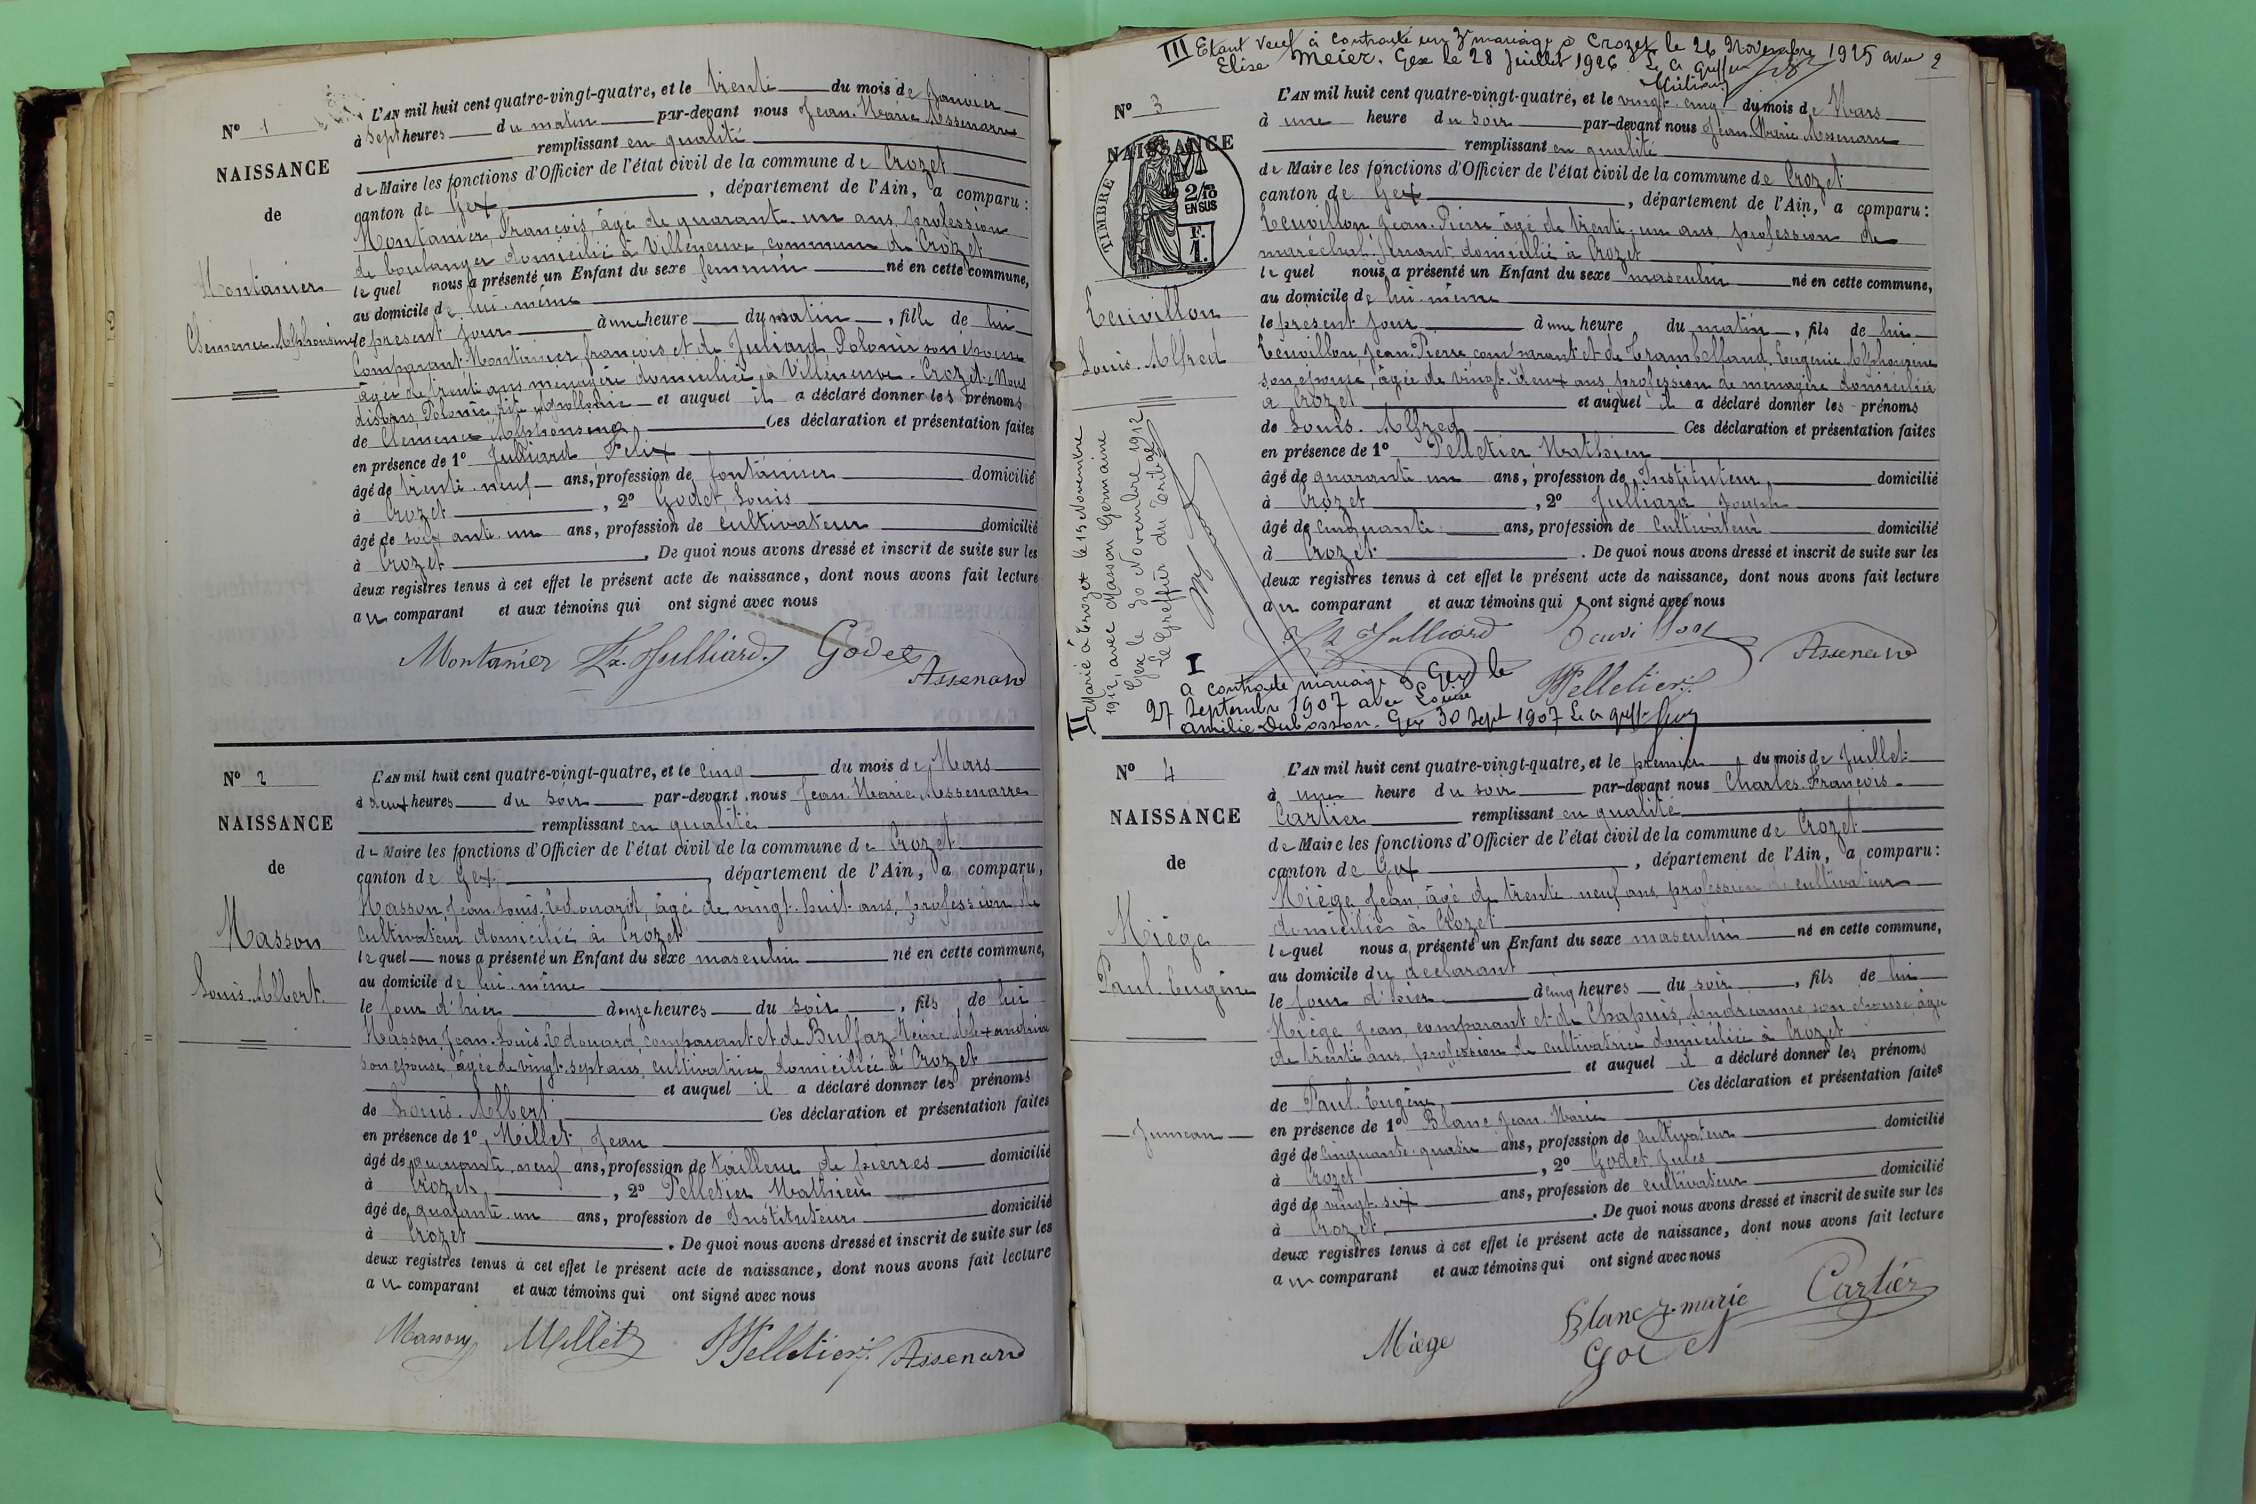 N° 1
NAISSANCE
de
Montanier
Clémence Alphonsine
L'AN mil huit cent quatre-vingt-quatre, et le trente du mois de Janvier
à sept heures du matin par-devant nous Jean Marie Assenarre
remplissant en qualité
de Maire les fonctions d'Officier de l'état civil de la commune de Crozet
canton de Gex, département de l'Ain, a comparu :
Montanier, François, âgé de quarante un ans, profession
de boulanger domicilié à Villeneuve, commune de Crozet
lequel nous a présenté un Enfant du sexe féminin né en cette commune,
au domicile de lui-même
le présent jour à une heure du matin, fille de lui
Comparant Montanier, françois et de Juliard Polonie son épouse
âgée de trente ans ménagère domiciliée à Villeneuve-Crozet. Nous
disons, Polonie dite Apollonie et auquel il a déclaré donner les prénoms
de Clémence Alphonsine Ces déclaration et présentation faites
en présence de 1° Julliard Félix
âgé de trente-neuf ans, profession de fontainier domicilié
à Crozet, 2° Godet, Louis
âgé de soixante un ans, profession de cultivateur domicilié
à Crozet. De quoi nous avons dressé et inscrit de suite sur les
deux registres tenus à cet effet le présent acte de naissance, dont nous avons fait lecture
au comparant et aux témoins qui ont signé avec nous
Montanier Fx. Julliard. Godet
Assenard
N° 2
NAISSANCE
de
Masson
Louis-Albert.
L'AN mil huit cent quatre-vingt-quatre, et le cinq du mois de Mars
à deux heures du soir par-devant nous Jean Marie Assenarre
remplissant en qualité
de Maire les fonctions d'Officier de l'état civil de la commune de Crozet
canton de Gex, département de l'Ain, a comparu,
Masson, Jean-Louis-Edouard, âgé de vingt-huit ans, profession de
cultivateur domicilié à Crozet
lequel nous a présenté un Enfant du sexe masculin né en cette commune,
au domicile de lui-même
le jour d'hier à onze heures du soir, fils de lui
Masson, Jean-Louis-Edouard, comparant et de Bulfaz Alexandrine
son épouse, âgée de vingt-sept ans, cultivatrice domiciliée à Crozet
et auquel il a déclaré donner les prénoms
de Louis-Albert Ces déclaration et présentation faites
en présence de 1° Millet Jean
âgé de quarante-neuf ans, profession de tailleur de pierres domicilié
à Crozet, 2° Pelletier Mathieu
âgé de quarante-un ans, profession de Instituteur domicilié
à Crozet. De quoi nous avons dressé et inscrit de suite sur les
deux registres tenus à cet effet le présent acte de naissance, dont nous avons fait lecture
au comparant et aux témoins qui ont signé avec nous
Masson Millet Pelletier Assenard
III Etant veuf à contracté un 3e mariage à Crozet le 26 Novembre 1925 avec
Elise Meier. Gex le 28 Juillet 1926 Le Cs Greffier
2
N° 3
NAISSANCE
TIMBRE
2/10
EN SUS
F.
1.
Teuvillon
Louis-Alfred
L'AN mil huit cent quatre-vingt-quatre, et le vingt-cinq du mois de Mars
à une heure du soir par-devant nous Jean Marie Assenarre
remplissant en qualité
de Maire les fonctions d'Officier de l'état civil de la commune de Crozet
canton de Gex, département de l'Ain, a comparu :
Teuvillon Jean-Pierre âgé de trente-un ans, profession de
maréchal-ferrant domicilié à Crozet
lequel nous a présenté un Enfant du sexe masculin né en cette commune,
au domicile de lui-même
le présent jour à une heure du matin, fils de lui
Teuvillon, Jean-Pierre, comparant et de Tramballand, Eugénie Alphonsine
son épouse, âgée de vingt-deux ans, profession de ménagère domiciliée
à Crozet et auquel il a déclaré donner les prénoms
de Louis-Alfred Ces déclaration et présentation faites
en présence de 1° Pelletier Mathieu
âgé de quarante un ans, profession de Instituteur domicilié
à Crozet, 2° Julliard Joseph
âgé de cinquante ans, profession de cultivateur domicilié
à Crozet. De quoi nous avons dressé et inscrit de suite sur les
deux registres tenus à cet effet le présent acte de naissance, dont nous avons fait lecture
au comparant et aux témoins qui ont signé avec nous
Julliard Teuvillon Assenard
Pelletier
II Marié à Crozet le 15 Novembre
1912, avec Masson Germaine
Gex le 30 Novembre 1912
Le Greffier du Tribal
I
a contracté mariage à Gex le
27 Septembre 1907 avec Louise
Amélie Dubosson. Gex 30 Sept 1907 Le Cs greff.
N° 4
NAISSANCE
de
Miège
Paul-Eugène
Jumeau
L'AN mil huit cent quatre-vingt-quatre, et le premier du mois de Juillet
à une heure du soir par-devant nous Charles-François
Cartier remplissant en qualité
de Maire les fonctions d'Officier de l'état civil de la commune de Crozet
canton de Gex, département de l'Ain, a comparu :
Miège Jean, âgé de trente-neuf ans, profession de cultivateur
domicilié à Crozet
lequel nous a présenté un Enfant du sexe masculin né en cette commune,
au domicile du déclarant
le jour d'hier à cinq heures du soir, fils de lui
Miège Jean, comparant et de Chapuis, Andréanne, son épouse, âgée
de trente ans, profession de cultivatrice domiciliée à Crozet
et auquel il a déclaré donner les prénoms
de Paul-Eugène, Ces déclaration et présentation faites
en présence de 1° Blanc Jean-Marie
âgé de cinquante-quatre ans, profession de cultivateur domicilié
à Crozet, 2° Godet Jules
âgé de vingt-six ans, profession de cultivateur domicilié
à Crozet. De quoi nous avons dressé et inscrit de suite sur les
deux registres tenus à cet effet le présent acte de naissance, dont nous avons fait lecture
au comparant et aux témoins qui ont signé avec nous
Miège Blanc J. marie Cartier
Godet